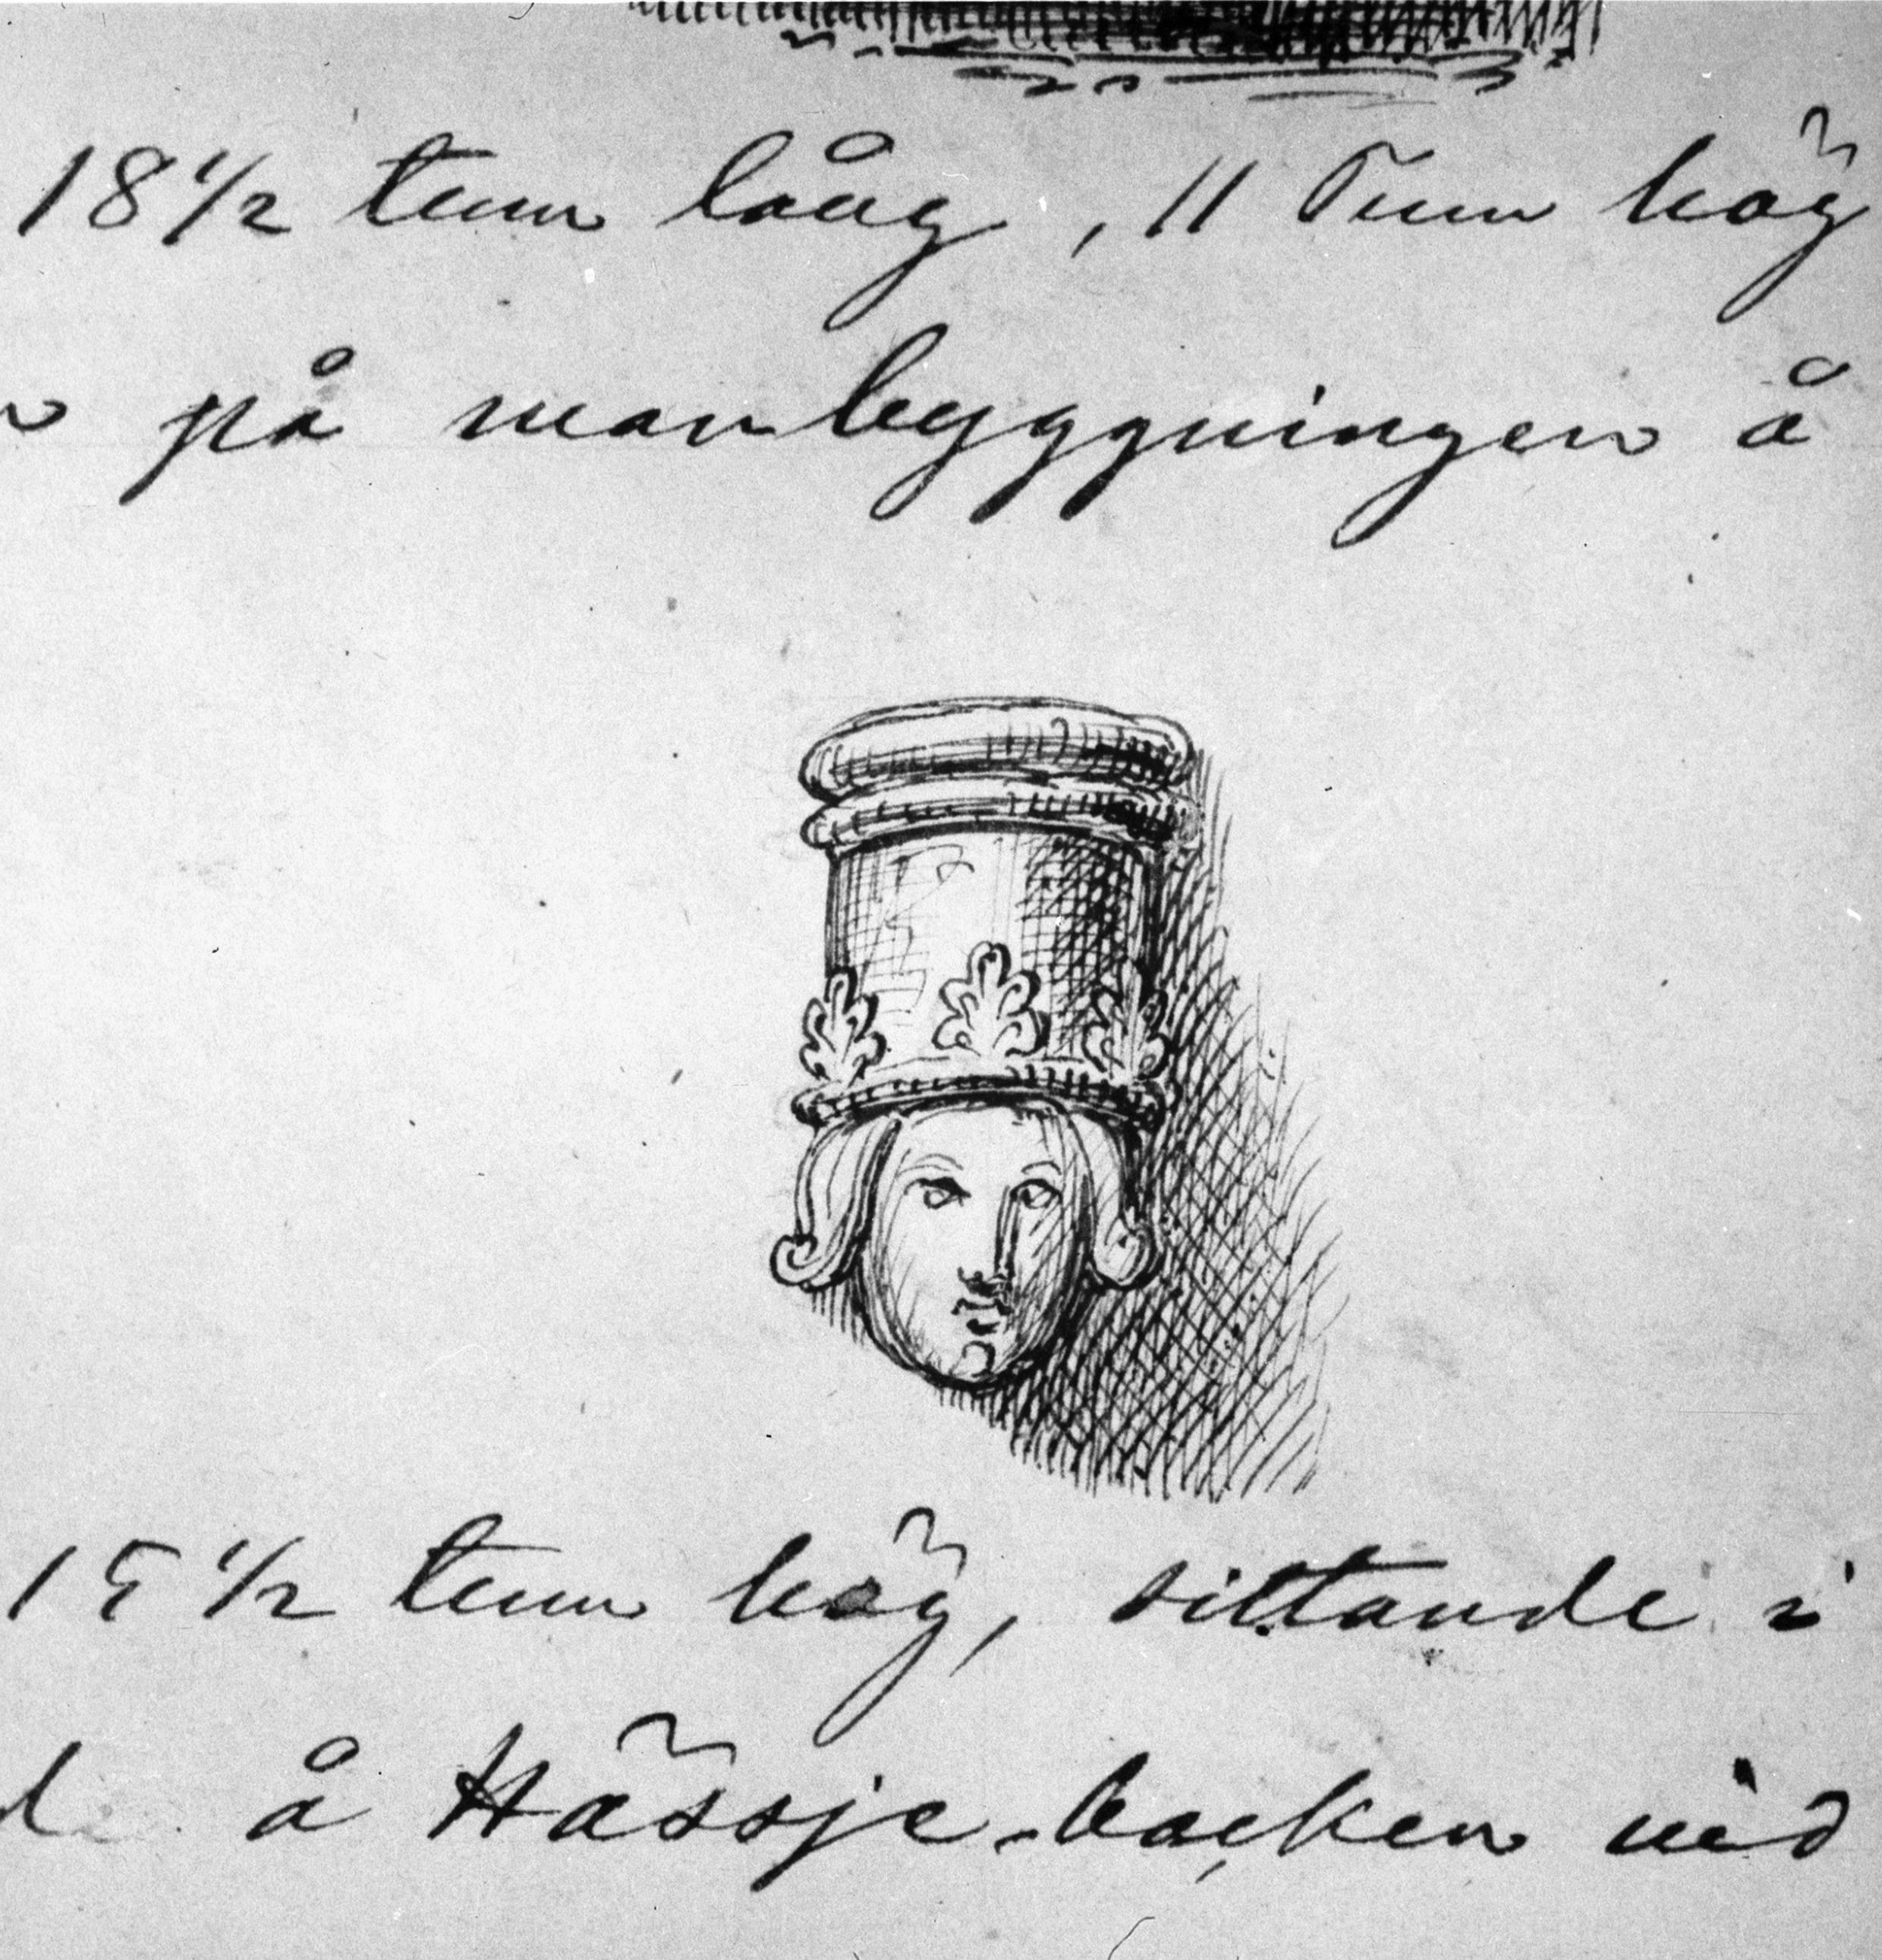 18 1/2 tum lång, 11 Tum hög
på manbyggningen å
15 1/2 tum hög, sittande i
å Hässje-backen vid